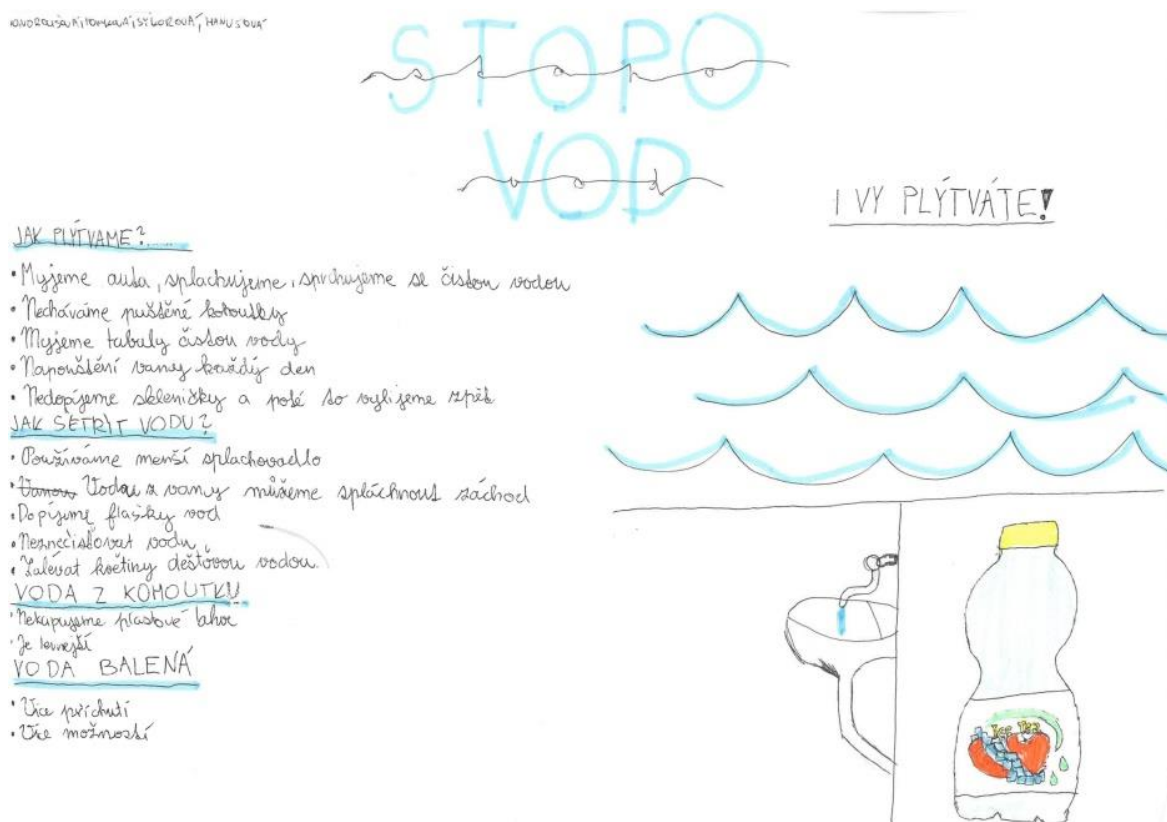 SÝKOROVÁ, HANUSOVÁ
STOPO
stopo
VOD
vod
I VY PLÝTVÁTE!
JAK PLÝTVAME?.....
• Myjeme auta, splachujeme, sprchujeme se čistou vodou
• Necháváme puštěné kohoutky
• Myjeme tabuly čistou vody
• Napouštění vany každý den
• Nedopijeme skleničky a poté to vylijeme zpět
JAK ŠETRIT VODU?
• Používáme menší splachovadlo
• Vodou z vany můžeme spláchnout záchod
• Dopijeme flašky vod
• Neznečišťovat vodu
• Zalévat květiny dešťovou vodou.
VODA Z KOHOUTKU...
• Nekupujeme plastové lahve
• Je levnější
VODA BALENÁ
• Více příchutí
• Více možností
Ice Tea